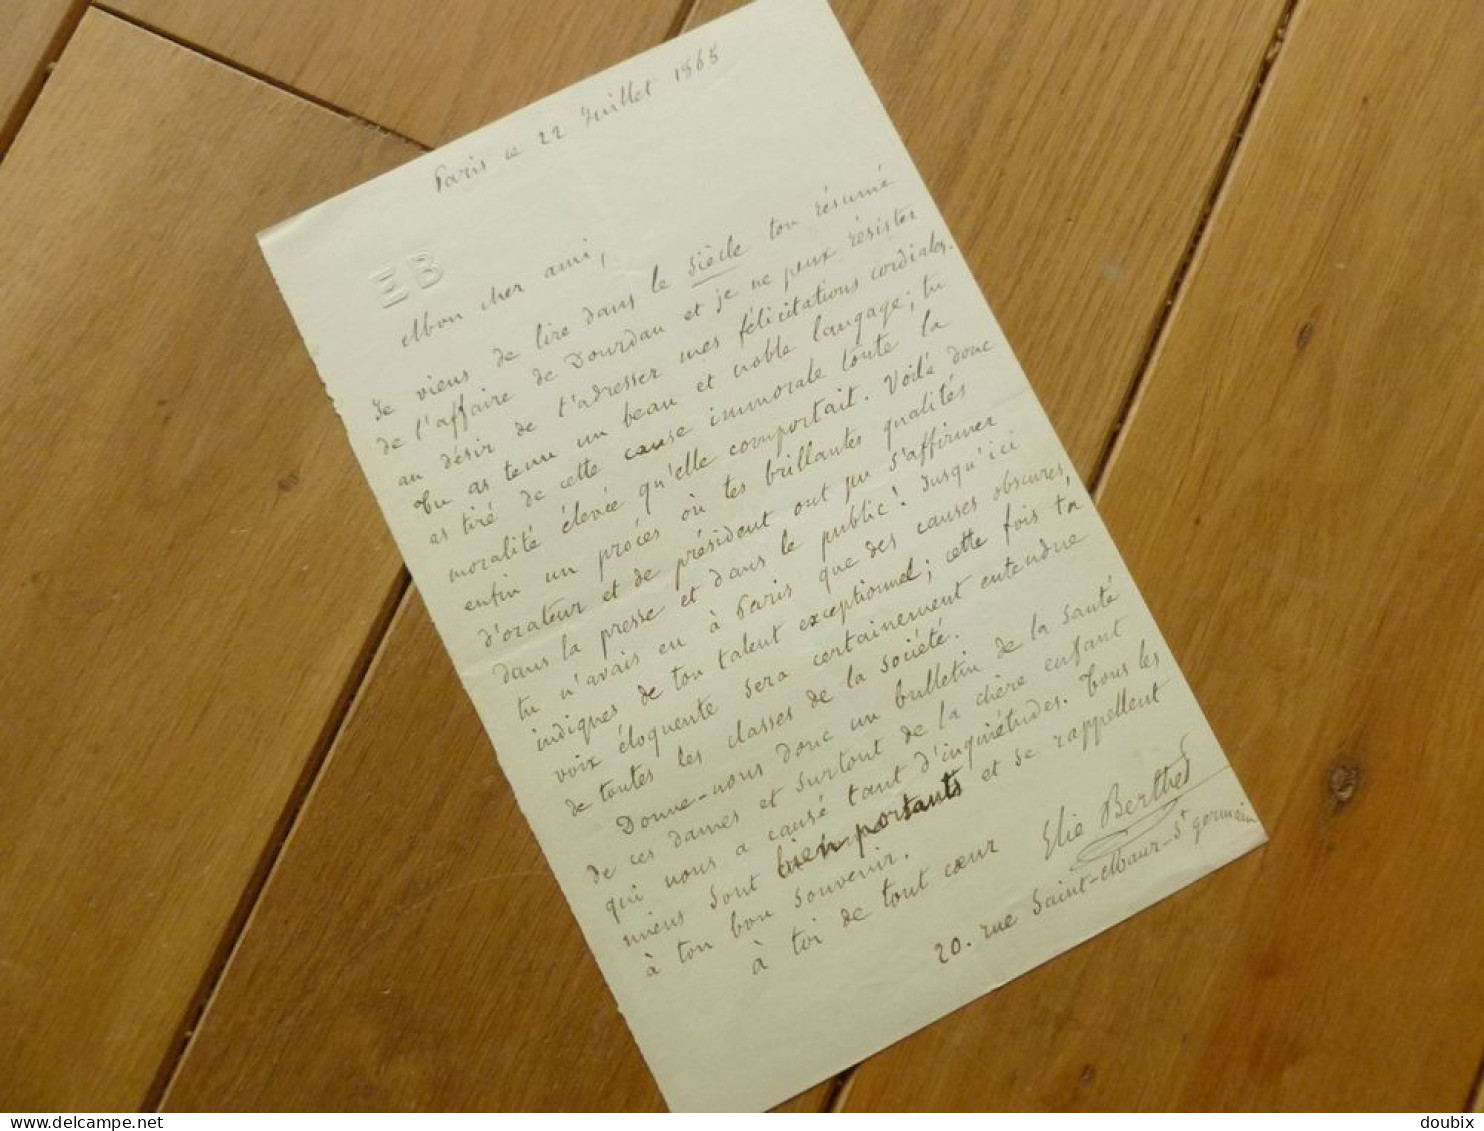 Paris ce 22 Juillet 1865
EB
Mon cher ami,
Je viens de lire dans le Siècle ton résumé
de l'affaire de Dourdan et je ne peux résister
au désir de t'adresser mes félicitations cordiales.
Tu as tenu un beau et noble langage ; tu
as tiré de cette cause immorale toute la
moralité élevée qu'elle comportait. Voilà donc
enfin un procès où tes brillantes qualités
d'orateur et de président ont pu s'affirmer
dans la presse et dans le public ! Jusqu'ici
tu n'avais eu à Paris que des causes obscures,
indignes de ton talent exceptionnel ; cette fois ta
voix éloquente sera certainement entendue
de toutes les classes de la société.
Donne-nous donc un bulletin de la santé
de ces dames et surtout de la chère enfant
qui nous a causé tant d'inquiétudes. Tous les
miens sont bien portants et se rappellent
à ton bon souvenir.
à toi de tout cœur
Elie Berthet
20. rue Saint-Maur-St germain
delcampe.net
doubix